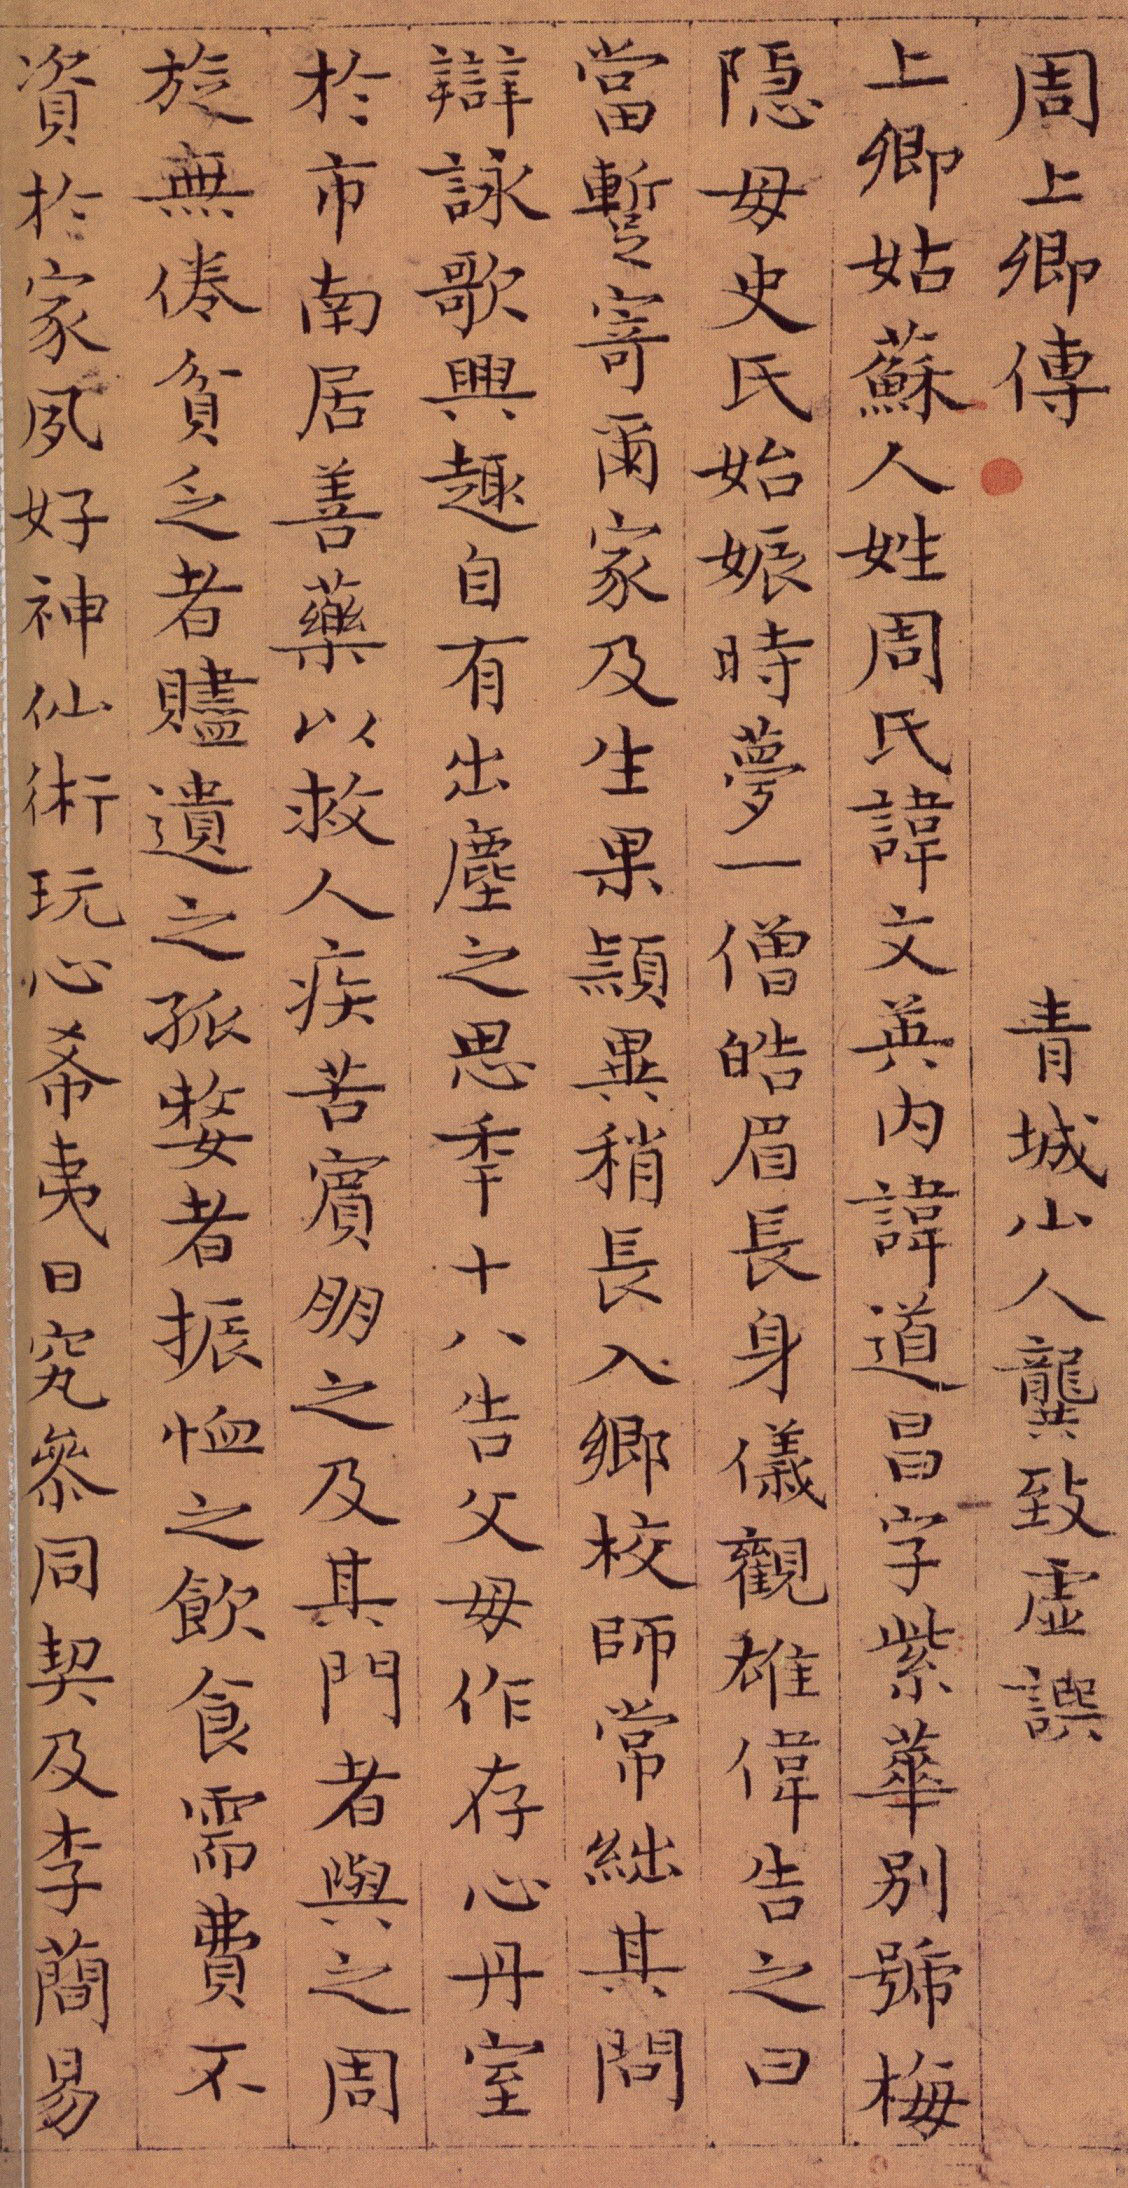 周上卿傳　青城山人龔致虛譔
上卿姑蘇人姓周氏諱文英內諱道昌字紫華別號梅
隠母史氏始娠時夢一僧皓眉長身儀觀雄偉告之曰
當蹔寄爾家及生果穎異稍長入鄉校師常絀其問
辯詠歌興趣自有出塵之思秊十八告父母作存心丹室
於市南居善藥以救人疾苦賓朋之及其門者與之周
旋無倦貧乏者贐遺之孤嫠者振恤之飲食需費不
資於家夙好神仙術玩心希夷日究參同契及李蕳易